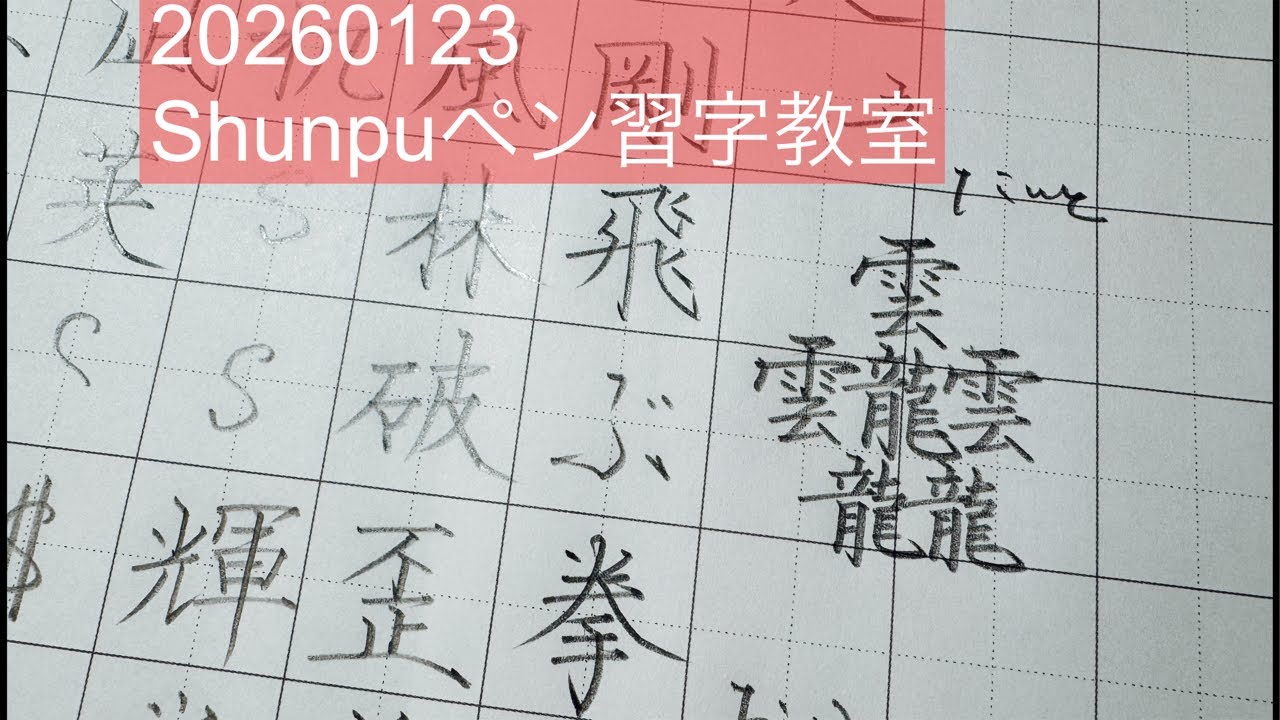 20260123
Shunpuペン習字教室
line
雲
雲龍雲
龍龍
剛飛ぶ拳
風林破歪
SS輝
英S
$